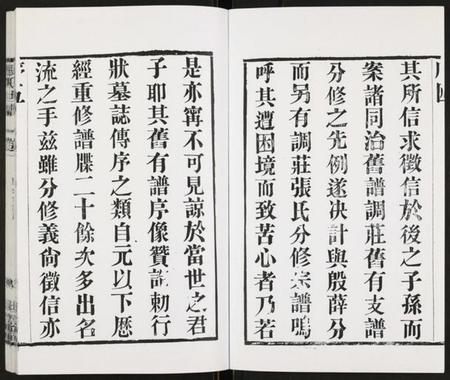 其所信求徵信於後之子孫而
案諸同治舊譜調莊舊有支譜
分修之先例遂决計與殷薛分
而另有調莊張氏分修宗譜嗚
呼其遭困境而致苦心者乃若
是亦寗不可見諒於當世之君
子耶其舊有譜序像贊誥勅行
狀墓誌傳序之類自元以下歴
經重修譜牒二十餘次多出名
流之手兹雖分修義尙徵信亦